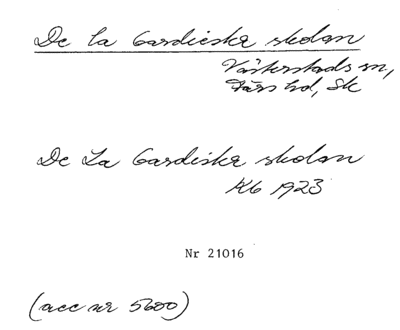 De la Gardieska skolan
Västerstads sn,
Färs hd, Sk
De La Gardiska skolan
Kb 1923
Nr 21016
(acc nr 5600)